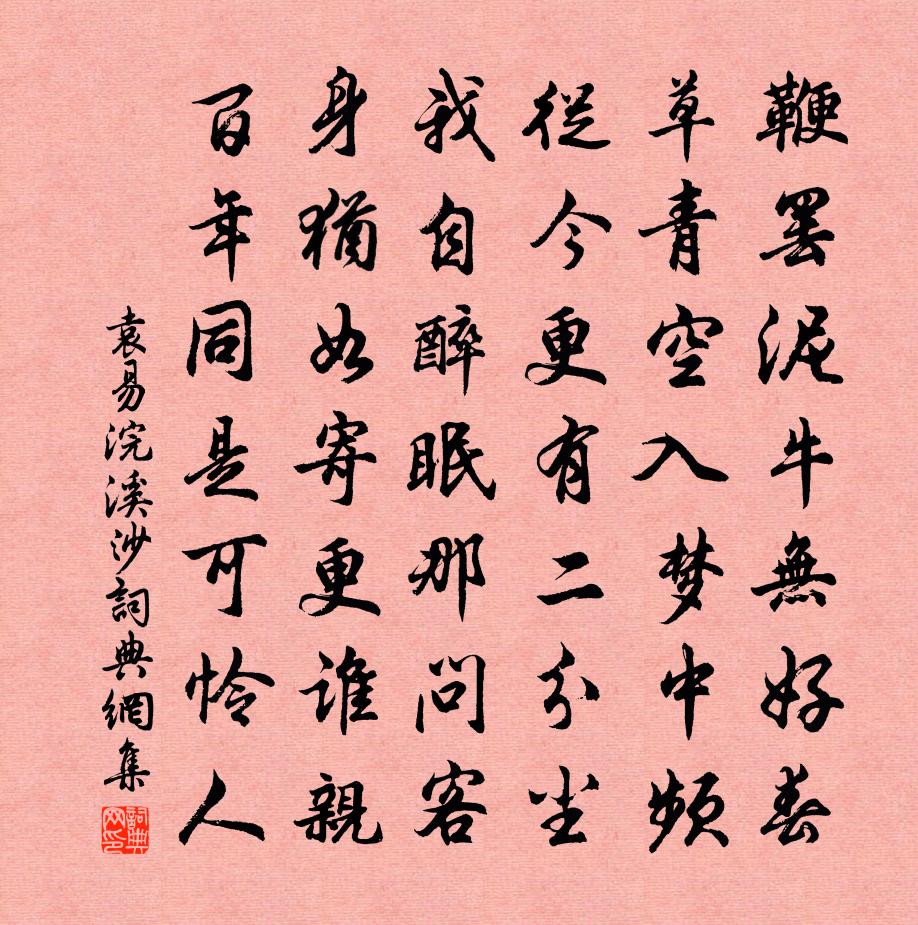 鞭罢泥牛無好春
草青空入梦中頻
從今更有二分尘
我自醉眠那問客
身猶如寄更誰親
百年同是可怜人
袁易浣溪沙詞典網集
詞典
网印